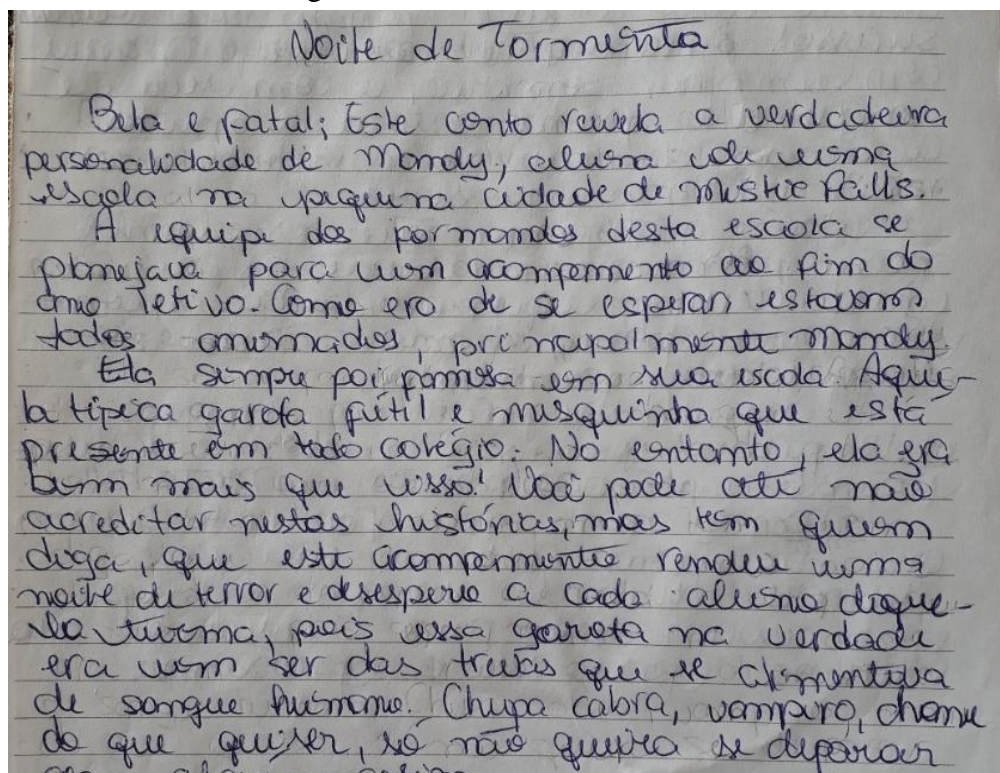 Noite de Tormenta
Bela e fatal; Este conto revela a verdadeira
personalidade de Mandy, aluna de uma
escola na pequena cidade de Mistic Falls.
A equipe dos formandos desta escola se
planejava para um acampamento ao fim do
ano letivo. Como era de se esperar estavam
todos animados, principalmente Mandy.
Ela sempre foi famosa em sua escola. Aque-
la típica garota fútil e misquinha que está
presente em todo colégio. No entanto, ela era
bem mais que isso! Você pode até não
acreditar nestas histórias, mas tem quem
diga, que este acampamento rendeu uma
noite de terror e desespero a cada aluno daque-
la turma, pois essa garota na verdade
era um ser das trevas que se alimentava
de sangue humano. Chupa cabra, vampiro, chame
do que quiser, só não queira se deparar